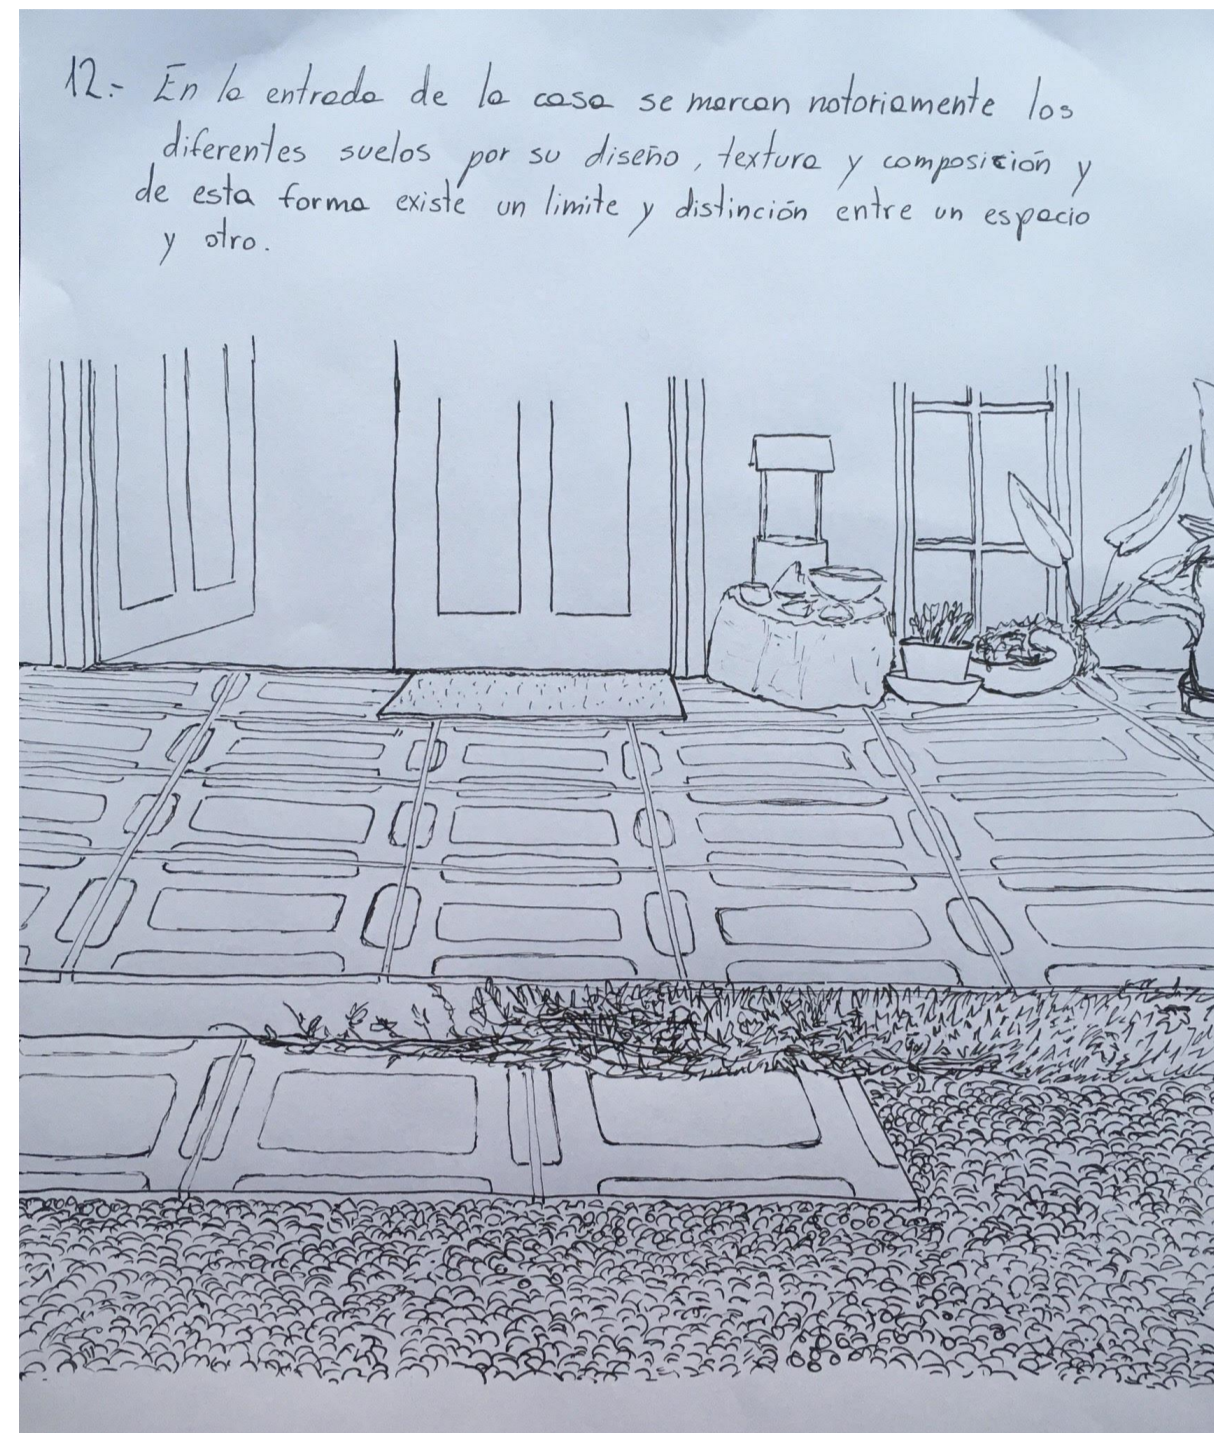 12.- En la entrada de la casa se marcan notoriamente los
diferentes suelos por su diseño, textura y composición y
de esta forma existe un limite y distinción entre un espacio
y otro.